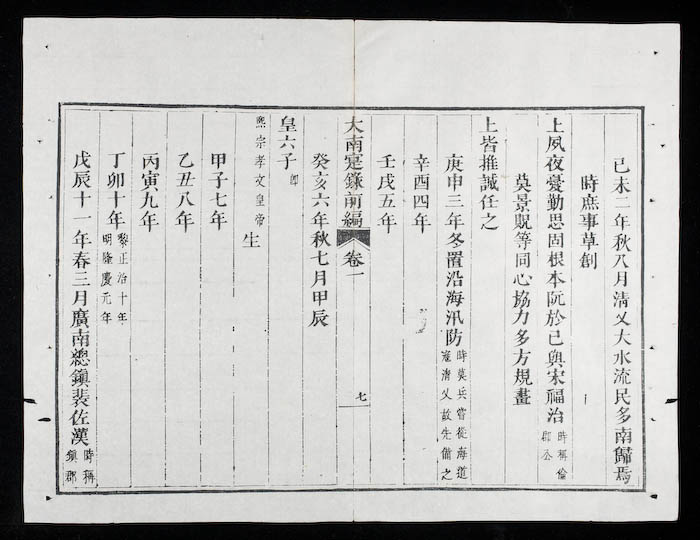 己未二年秋八月清乂大水流民多南歸焉
時庶事草創
上夙夜憂勤思固根本阮於己與宋福治時稱倫郡公
莫景貺等同心協力多方規畫
上皆推誠任之
庚申三年冬置沿海汛防時莫兵嘗從海道寇清乂故先備之
辛酉四年
壬戌五年
大南寔錄前編 卷一 七
癸亥六年秋七月甲辰
皇六子卽
熙宗孝文皇帝生
甲子七年
乙丑八年
丙寅九年
丁卯十年黎正治十年明隆慶元年
戊辰十一年春三月廣南總鎮裴佐漢時稱鎮郡